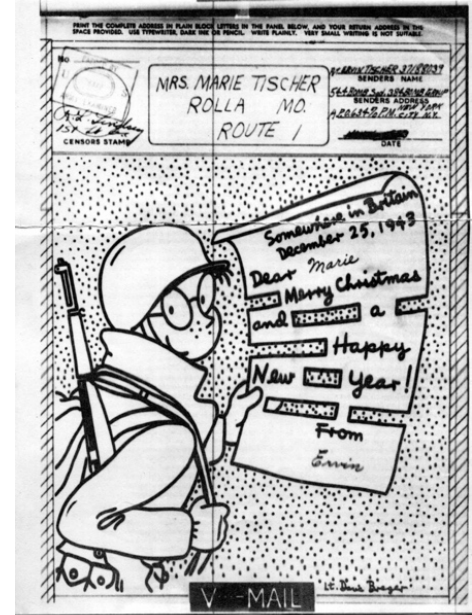 PRINT THE COMPLETE ADDRESS IN PLAIN BLOCK LETTERS IN THE PANEL BELOW, AND YOUR RETURN ADDRESS IN THE
SPACE PROVIDED. USE TYPEWRITER, DARK INK OR PENCIL. WRITE PLAINLY. VERY SMALL WRITING IS NOT SUITABLE.
No
CENSORS STAMP
MRS. MARIE TISCHER
ROLLA MO.
ROUTE 1
ERVIN TISCHER 37188039
SENDERS NAME
SENDERS ADDRESS
NEW YORK
CITY N.Y.
DATE
Somewhere in Britain
December 25, 1943
Dear Marie
Merry Christmas
and a
Happy
New Year!
From
Ervin
Lt. Dave Breger
V - MAIL